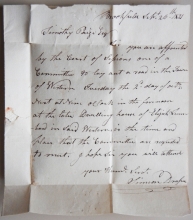 Brookfield Sept. 20th
Timothy Paige Esq
you are appointed
by the Court of Sessions one of a
Committee to lay out a road in the Town
of Western Tuesday the 2d day of Octr.
next at nine o'Clock in the forenoon
at the late dwelling house of Elijah
in said Western is the time and
place the Committee are
to meet. I hope Sir you will attend
your Humbl Servt.